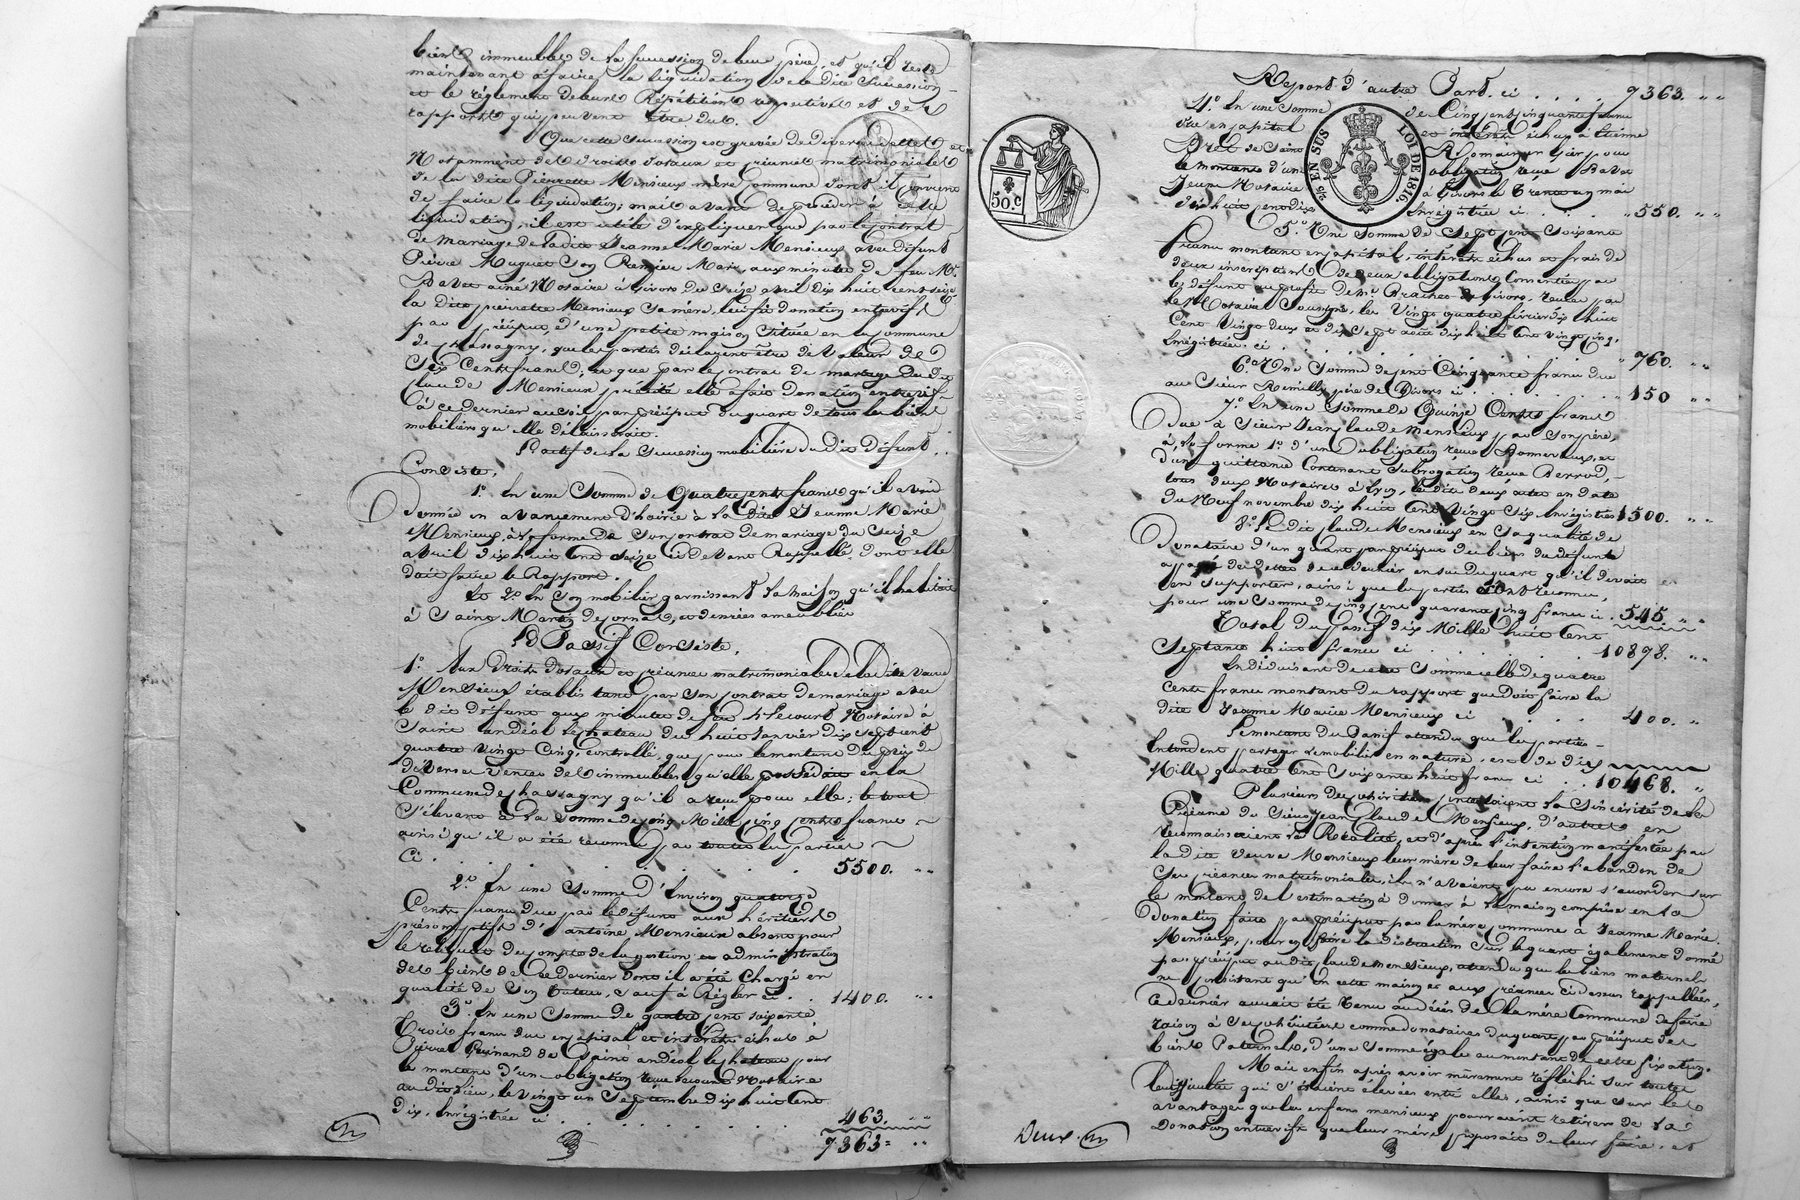 biens immeubles de la succession de leur père, et qu'il reste
maintenant à faire la liquidation de la dite succession
et le règlement de leurs Répétitions respectives et des
rapports qui peuvent être dus.
Que cette succession est grevée de diverses dettes et
Notamment des droits dotaux et créances matrimoniales
de la dite Pierrette Mensieux mère Commune dont il convient
de faire la liquidation; mais avant de procéder à cette
liquidation, il est utile d'expliquer que par le contrat
de mariage de ladite Jeanne Marie Mensieux avec défunt
Pierre Muguet son Premier Mari, aux minutes de feu Me
Bavet ainé Notaire à Givors du seize avril dix huit cent seize
la dite pierrette Mensieux sa mère, lui fit donation entrevifs
par préciput d'une petite maison située en la commune
de chassagny, que les parties déclarent être de valeur de
Six Cents francs; et que par le contrat de mariage du dit
claude Mensieux précité elle a fait donation entrevifs
à ce dernier aussi par préciput du quart de tous les biens
mobiliers qu'elle délaisserait.
L'actif de la succession mobilière du dit défunt
Consiste,
1º. En une Somme de quatre cents francs qu'il avait
donnée en avancement d'hoirie à la dite Jeanne Marie
Mensieux, à la forme de son contrat de mariage du seize
avril dix huit cent seize ci devant Rappellé, dont elle
doit faire le Rapport.
Et 2º. En son mobilier garnissant la maison qu'il habitait
à Saint Martin de Cornas, et denrées ameublies
Le Passif Consiste,
1º. Aux droits dotaux et créances matrimoniales de la dite veuve
Mensieux établis tant par son contrat de mariage avec
le dit défunt aux minutes de feu Me Lecourt Notaire à
Saint andéol le chateau du huit Janvier dix sept cent
quatre vingt cinq, Controllé, que pour le montant du prix de
diverses ventes des immeubles qu'elle possédait en la
Commune de chassagny qu'il a reçu pour elle; le tout
s'élevant à la somme de cinq Mille cinq cents francs
ainsi qu'il a été reconnu par toutes les parties
Ci . . . . . . . . 5500. " "
2º. En une somme d'Environ quatorze
Cents francs due par le défunt aux héritiers
présomptifs d'antoine Mensieux absent pour
le reliquat du compte de la gestion et administration
des biens de ce dernier dont il a été chargé en
qualité de son tuteur, sauf à Régler ci . . 1400. " "
3º. En une somme de quatre cent soixante
trois francs due en capital et intérêts échus à
Pierre de Saint andéol le chateau pour
le montant d'un obligation reçue Lecourt Notaire
au dit lieu, le vingt un Septembre dix huit cent
dix, Enrégistrée ci . . . . . . . 463. " "
7363= " "
Report d'autre Part. ci . . . . 7363. " "
4º. En une somme de Cinq cent cinquante francs
due en capital et intérêts échus à Etienne
Bret de Saint Romain en gier pour
le montant d'une obligation reçue Bavet
jeune Notaire à Givors le trente un mai
dix huit cent dix Enrégistrée ci . . . 550. " "
50.c
2/5 EN SUS LOI DE 1816.
5º. Une Somme de Sept cent soixante
francs montant en capital, intérêts échus et frais de
deux inscriptions de deux obligations Consenties par
le défunt au profit de Mr Brachet de Givors, reçues par
le Notaire Soussigné, les Vingt quatre février dix huit
Cent Vingt deux et dix sept août dix huit cent vingt cinq,
Enrégistrées ci . . . . . . . 760. " "
6º. Une Somme de cent Cinquante francs due
au Sieur Remilly père de Givors ci . . . . 150 " "
7º. En une Somme de Quinze Cents francs
due à Sieur Jean Claude Mensieux par son père,
à la forme 1º. d'une obligation reçue et
d'un quittance Contenant subrogation reçue Berrod,
tous deux Notaires à Lyon, les dits deux actes en date
du Neuf novembre dix huit Cent Vingt Six Enrégistrés 1500. " "
8º. Le dit claude Mensieux en sa qualité de
Donataire d'un quart par préciput des biens du défunt
a payé des dettes de ce dernier en sus du quart qu'il devait en
en supporter, ainsi que les parties l'ont reconnu,
pour une somme de cinq cent quarante cinq francs ci . 545. " "
Total du passif dix Mille huit Cent
Septante huit francs ci . . . . . . 10878. " "
En déduisant de cette Somme celle de quatre
Cents francs montant du rapport que doit faire la
dite Jeanne Marie Mensieux ci . . . . 400. "
Le montant du Passif attendu que les parties
Entendent partager le mobilier en nature, est de dix
Mille quatre Cent Soixante huit francs ci . . 10468. "
Plusieurs des cohéritiers contestaient la sincérité de la
Créance de Sieur Jean Claude Mensieux, d'autres en
reconnaissaient la Réalité, et d'après l'intention manifestée par
la dite veuve Mensieux leur mère de leur faire l'abandon de
ses créances matrimoniales, ils n'avaient pu encore s'accorder sur
le montant de l'estimation à donner à la maison comprise en la
Donation faite par préciput par la mère commune à Jeanne Marie
Mensieux, pour en faire la distraction sur le quart également donné
par préciput au dit claude mensieux, attendu que les biens maternels
ne consistant qu'en cette maison et aux créances ci dessus rappellées,
ce dernier aurait été tenu au décès de la mère Commune de faire
raison à ses cohéritiers comme donataires du quart par préciput des
biens Paternels, d'une somme égale au montant de cette fixation.
Mais enfin après avoir mûrement réfléchi sur toutes
les difficultés qui s'étaient élevées entre elles, ainsi que sur les
avantages que les enfans mensieux pourraient retirer de la
donation entrevifs que leur mère proposait de leur faire, et
Deux.